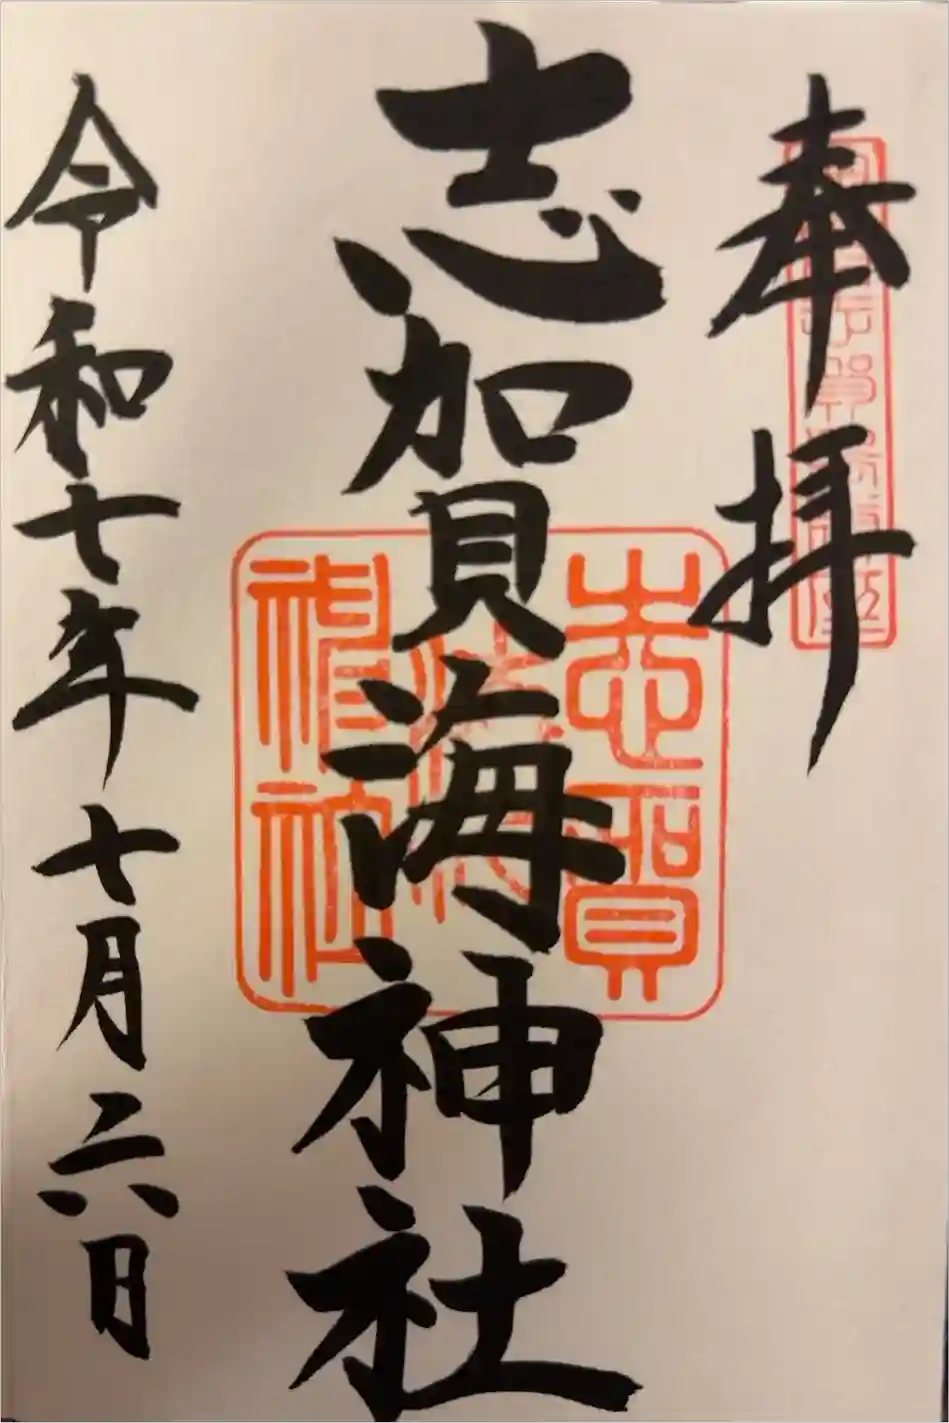 奉拝
志賀海神社
令和七年十月二六日
志賀
海
神社